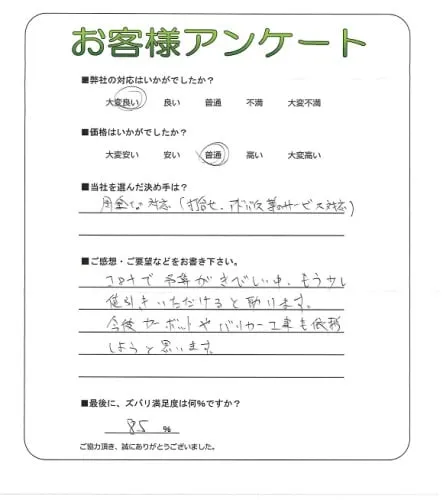 お客様アンケート
■弊社の対応はいかがでしたか?
大変良い 良い 普通 不満 大変不満
■価格はいかがでしたか?
大変安い 安い 普通 高い 大変高い
■当社を選んだ決め手は?
対応(打合せ、サービス対応)
■ご感想・ご要望などをお書き下さい。
コロナで予算がきびしい中、もう少し
値引きいただけると助ります。
今後カーポットやバリカー工事も依頼
しようと思います
■最後に、ズバリ満足度は何%ですか?
85 %
ご協力頂き、誠にありがとうございました。